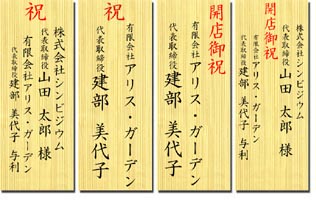 祝
株式会社シンビジウム
代表取締役 山田 太郎 様
有限会社アリス・ガーデン
代表取締役 建部 美代子 与利
祝
有限会社アリス・ガーデン
代表取締役 建部 美代子
開店御祝
有限会社アリス・ガーデン
代表取締役 建部 美代子
株式会社シンビジウム
代表取締役 山田 太郎 様
開店御祝
有限会社アリス・ガーデン
代表取締役 建部 美代子 与利